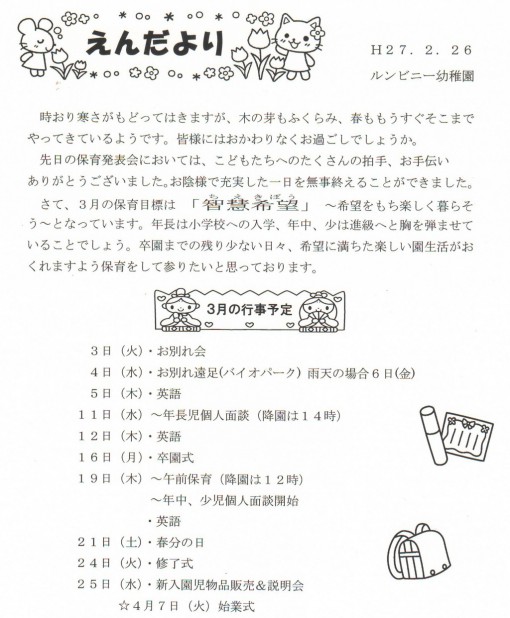 えんだより
H27.2.26
ルンビニー幼稚園
時おり寒さがもどってはきますが、木の芽もふくらみ、春ももうすぐそこまで
やってきているようです。皆様にはおかわりなくお過ごしでしょうか。
先日の保育発表会においては、こどもたちへのたくさんの拍手、お手伝い
ありがとうございました。お陰様で充実した一日を無事終えることができました。
ちえきぼう
さて、3月の保育目標は 「智慧希望」 ～希望をもち楽しく暮らそ
う～となっています。年長は小学校への入学、年中、少は進級へと胸を弾ませて
いることでしょう。卒園までの残り少ない日々、希望に満ちた楽しい園生活がお
くれますよう保育をして参りたいと思っております。
3月の行事予定
3日（火）・お別れ会
4日（水）・お別れ遠足(バイオパーク) 雨天の場合6日(金)
5日（木）・英語
11日（水）～年長児個人面談（降園は14時）
12日（木）・英語
16日（月）・卒園式
19日（木）～午前保育（降園は12時）
～年中、少児個人面談開始
・英語
21日（土）・春分の日
24日（火）・修了式
25日（水）・新入園児物品販売＆説明会
☆4月7日（火）始業式